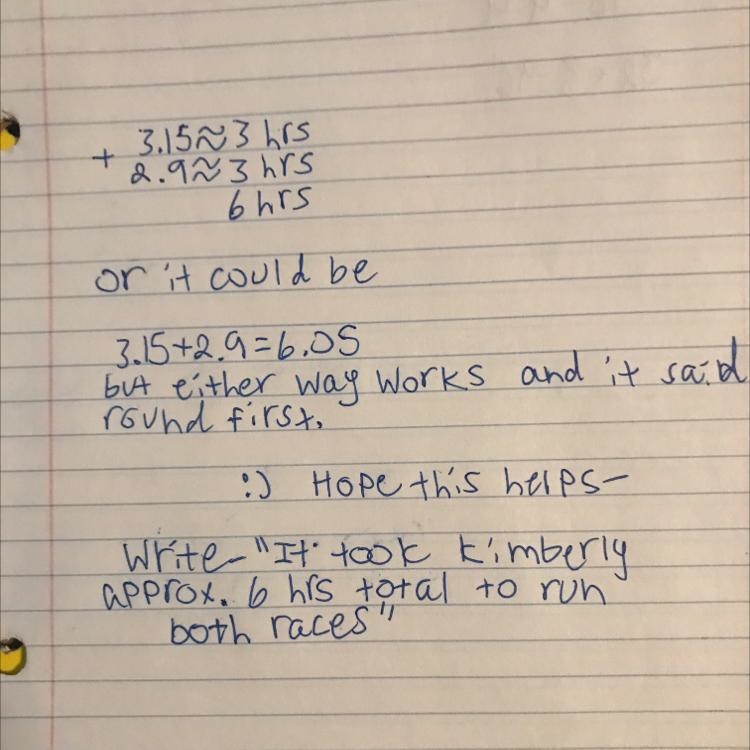 3.15≈3 hrs
+ 2.9≈3 hrs
6 hrs
or it could be
3.15+2.9=6.05
but either way works and it said
round first.
:) Hope this helps-
Write-"It took kimberly
approx. 6 hrs total to run
both races"